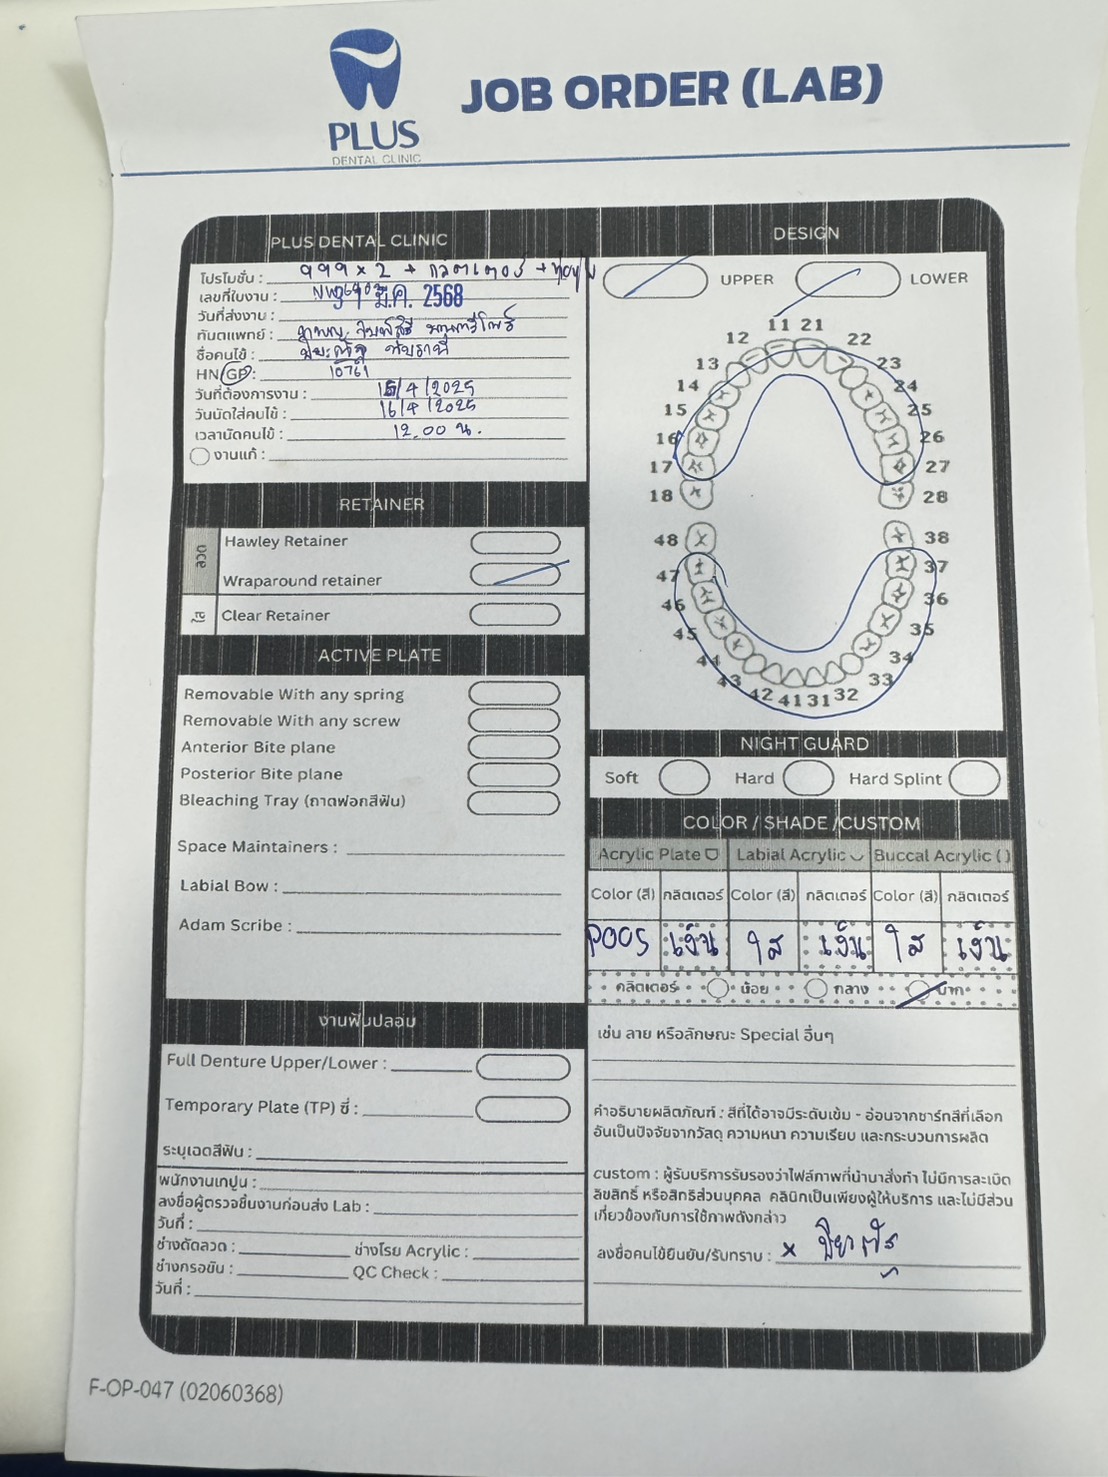 PLUS
DENTAL CLINIC
JOB ORDER (LAB)
PLUS DENTAL CLINIC
โปรโมชั่น : 999 x 2 + กลิตเตอร์ +
เลขที่ใบงาน :
วันที่ส่งงาน : มี.ค. 2568
ทันตแพทย์ :
ชื่อคนไข้ :
HN/GP : 10761
วันที่ต้องการงาน : 15/4/2025
วันนัดใส่คนไข้ : 16/4/2025
เวลานัดคนไข้ : 12.00 น.
งานแก้ :
RETAINER
ลวด
Hawley Retainer
Wraparound retainer
ใส
Clear Retainer
ACTIVE PLATE
Removable With any spring
Removable With any screw
Anterior Bite plane
Posterior Bite plane
Bleaching Tray (ถาดฟอกสีฟัน)
Space Maintainers :
Labial Bow :
Adam Scribe :
งานฟันปลอม
Full Denture Upper/Lower :
Temporary Plate (TP) ซี่ :
ระบุเฉดสีฟัน :
พนักงานเทปูน :
ลงชื่อผู้ตรวจชิ้นงานก่อนส่ง Lab :
วันที่ :
ช่างดัดลวด : ช่างโรย Acrylic :
ช่างกรอขัด : QC Check :
วันที่ :
DESIGN
UPPER LOWER
11 21
12 22
13 23
14 24
15 25
16 26
17 27
18 28
48 38
47 37
46 36
45 35
44 34
43 33
42 41 31 32
NIGHT GUARD
Soft Hard Hard Splint
COLOR / SHADE /CUSTOM
Acrylic Plate Labial Acrylic Buccal Acrylic ( )
Color (สี) กลิตเตอร์ Color (สี) กลิตเตอร์ Color (สี) กลิตเตอร์
P005 เงิน ใส เงิน ใส เงิน
กลิตเตอร์ น้อย กลาง มาก
เช่น ลาย หรือลักษณะ Special อื่นๆ
คำอธิบายผลิตภัณฑ์ : สีที่ได้อาจมีระดับเข้ม - อ่อนจากชาร์ทสีที่เลือก
อันเป็นปัจจัยจากวัสดุ ความหนา ความเรียบ และกระบวนการผลิต
custom : ผู้รับบริการรับรองว่าไฟล์ภาพที่นำมาสั่งทำ ไม่มีการละเมิด
ลิขสิทธิ์ หรือสิทธิส่วนบุคคล คลินิกเป็นเพียงผู้ให้บริการ และไม่มีส่วน
เกี่ยวข้องกับการใช้ภาพดังกล่าว
ลงชื่อคนไข้ยืนยัน/รับทราบ : x
F-OP-047 (02060368)